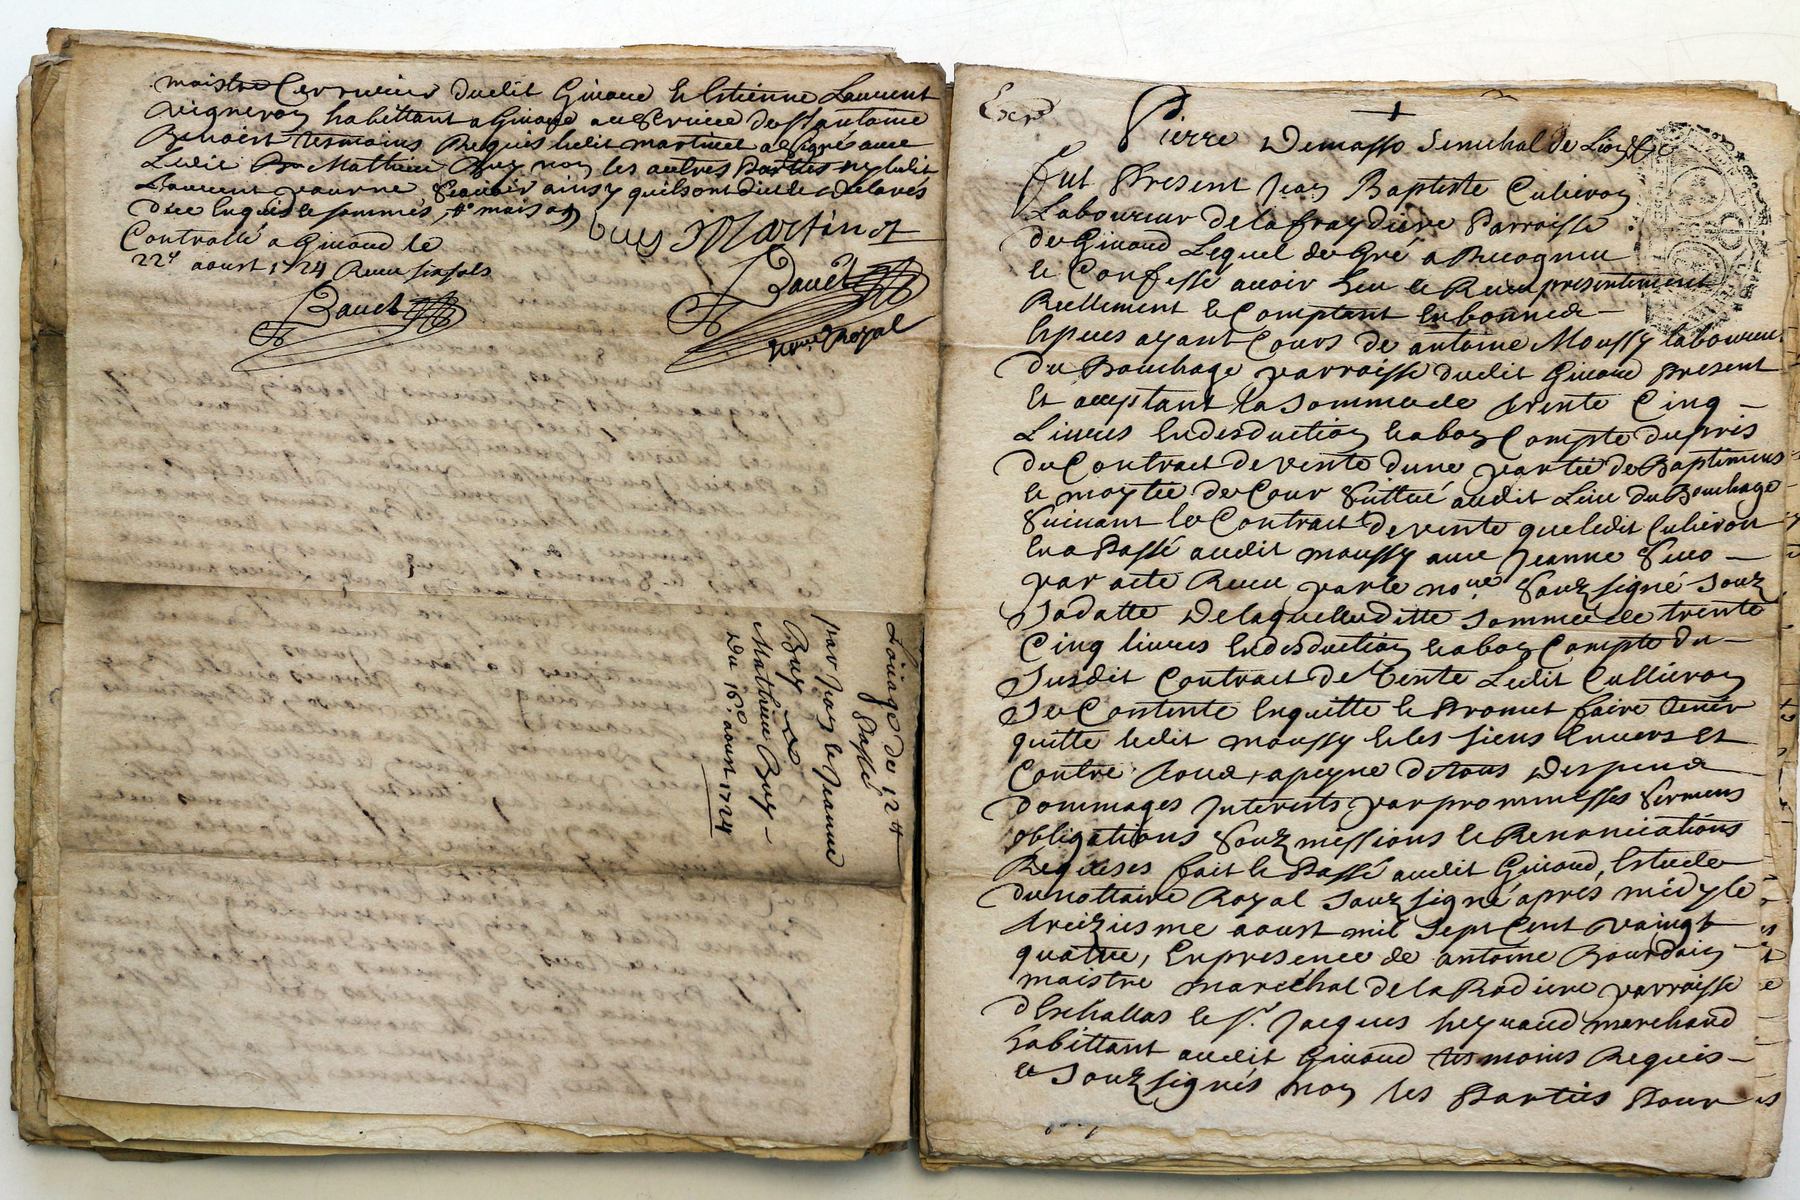 maistre Cerrurier dudit Givord & Estienne Laurent
vigneron habittant a Givord au service de st antoine
Benoist tesmoins Requis ledit martinet a signé avec
Ledit Mathieu Buy non les autres Parties ny ledit
Laurent pour ne scavoir ainsy quils ont dit & declarés
de ce Enquis & sommés
Buy Martinet
Controllé a Givord le
22e aoust 1724 Receu six sols
Bauet
Bauet
Royal
Loüage de 12#
Passé
par Jean & Jeanne
Buy a
Mathieu Buy
Du 16e aoust 1724
Exp
Pierre Demasso Senechal de Lion &c
fut Present Jean Baptiste Culieron
Laboureur de la fraydiere Parroisse
de Givord Lequel de Gré a Recogneu
& Confessé avoir heu & Receu presentement
Reellement & Comptant en bonnes
Especes ayant Cours de antoine Moussy laboureur
du Bouchage parroisse dudit Givord Present
Et acceptant la somme de trente Cinq
Livres En desduction & a bon Compte du pris
du Contract de vente dune partie de Baptimens
& moytié de Cour scittué audit Lieu du Bouchage
suivant le Contract de vente que ledit Culieron
En a Passé audit moussy avec Jeanne
par acte Receu par le nore souz signé souz
sa datte De laquelle ditte somme de trente
Cinq livres En desduction & a bon Compte du
susdit Contract de Vente Ledit Cullieron
se Contente Enquitte & Promet faire tenir
quitte ledit moussy & les siens Envers Et
Contre tous, a peyne de tous Despens
dommages Interests par prommesses sermens
obligations souzmissions & Renonciations
Requises fait & Passé audit Givord, Estude
du nottaire Royal souz signé apres midy le
treiziesme aoust mil sept Cent vaingt
quatre, En presence de antoine Bourdain
maistre marechal de la Rodiere parroisse
dEschallas & sr. Jacques heyraud marchand
habittant audit Givord tesmoins Requis
& souz signés non les Parties Pour